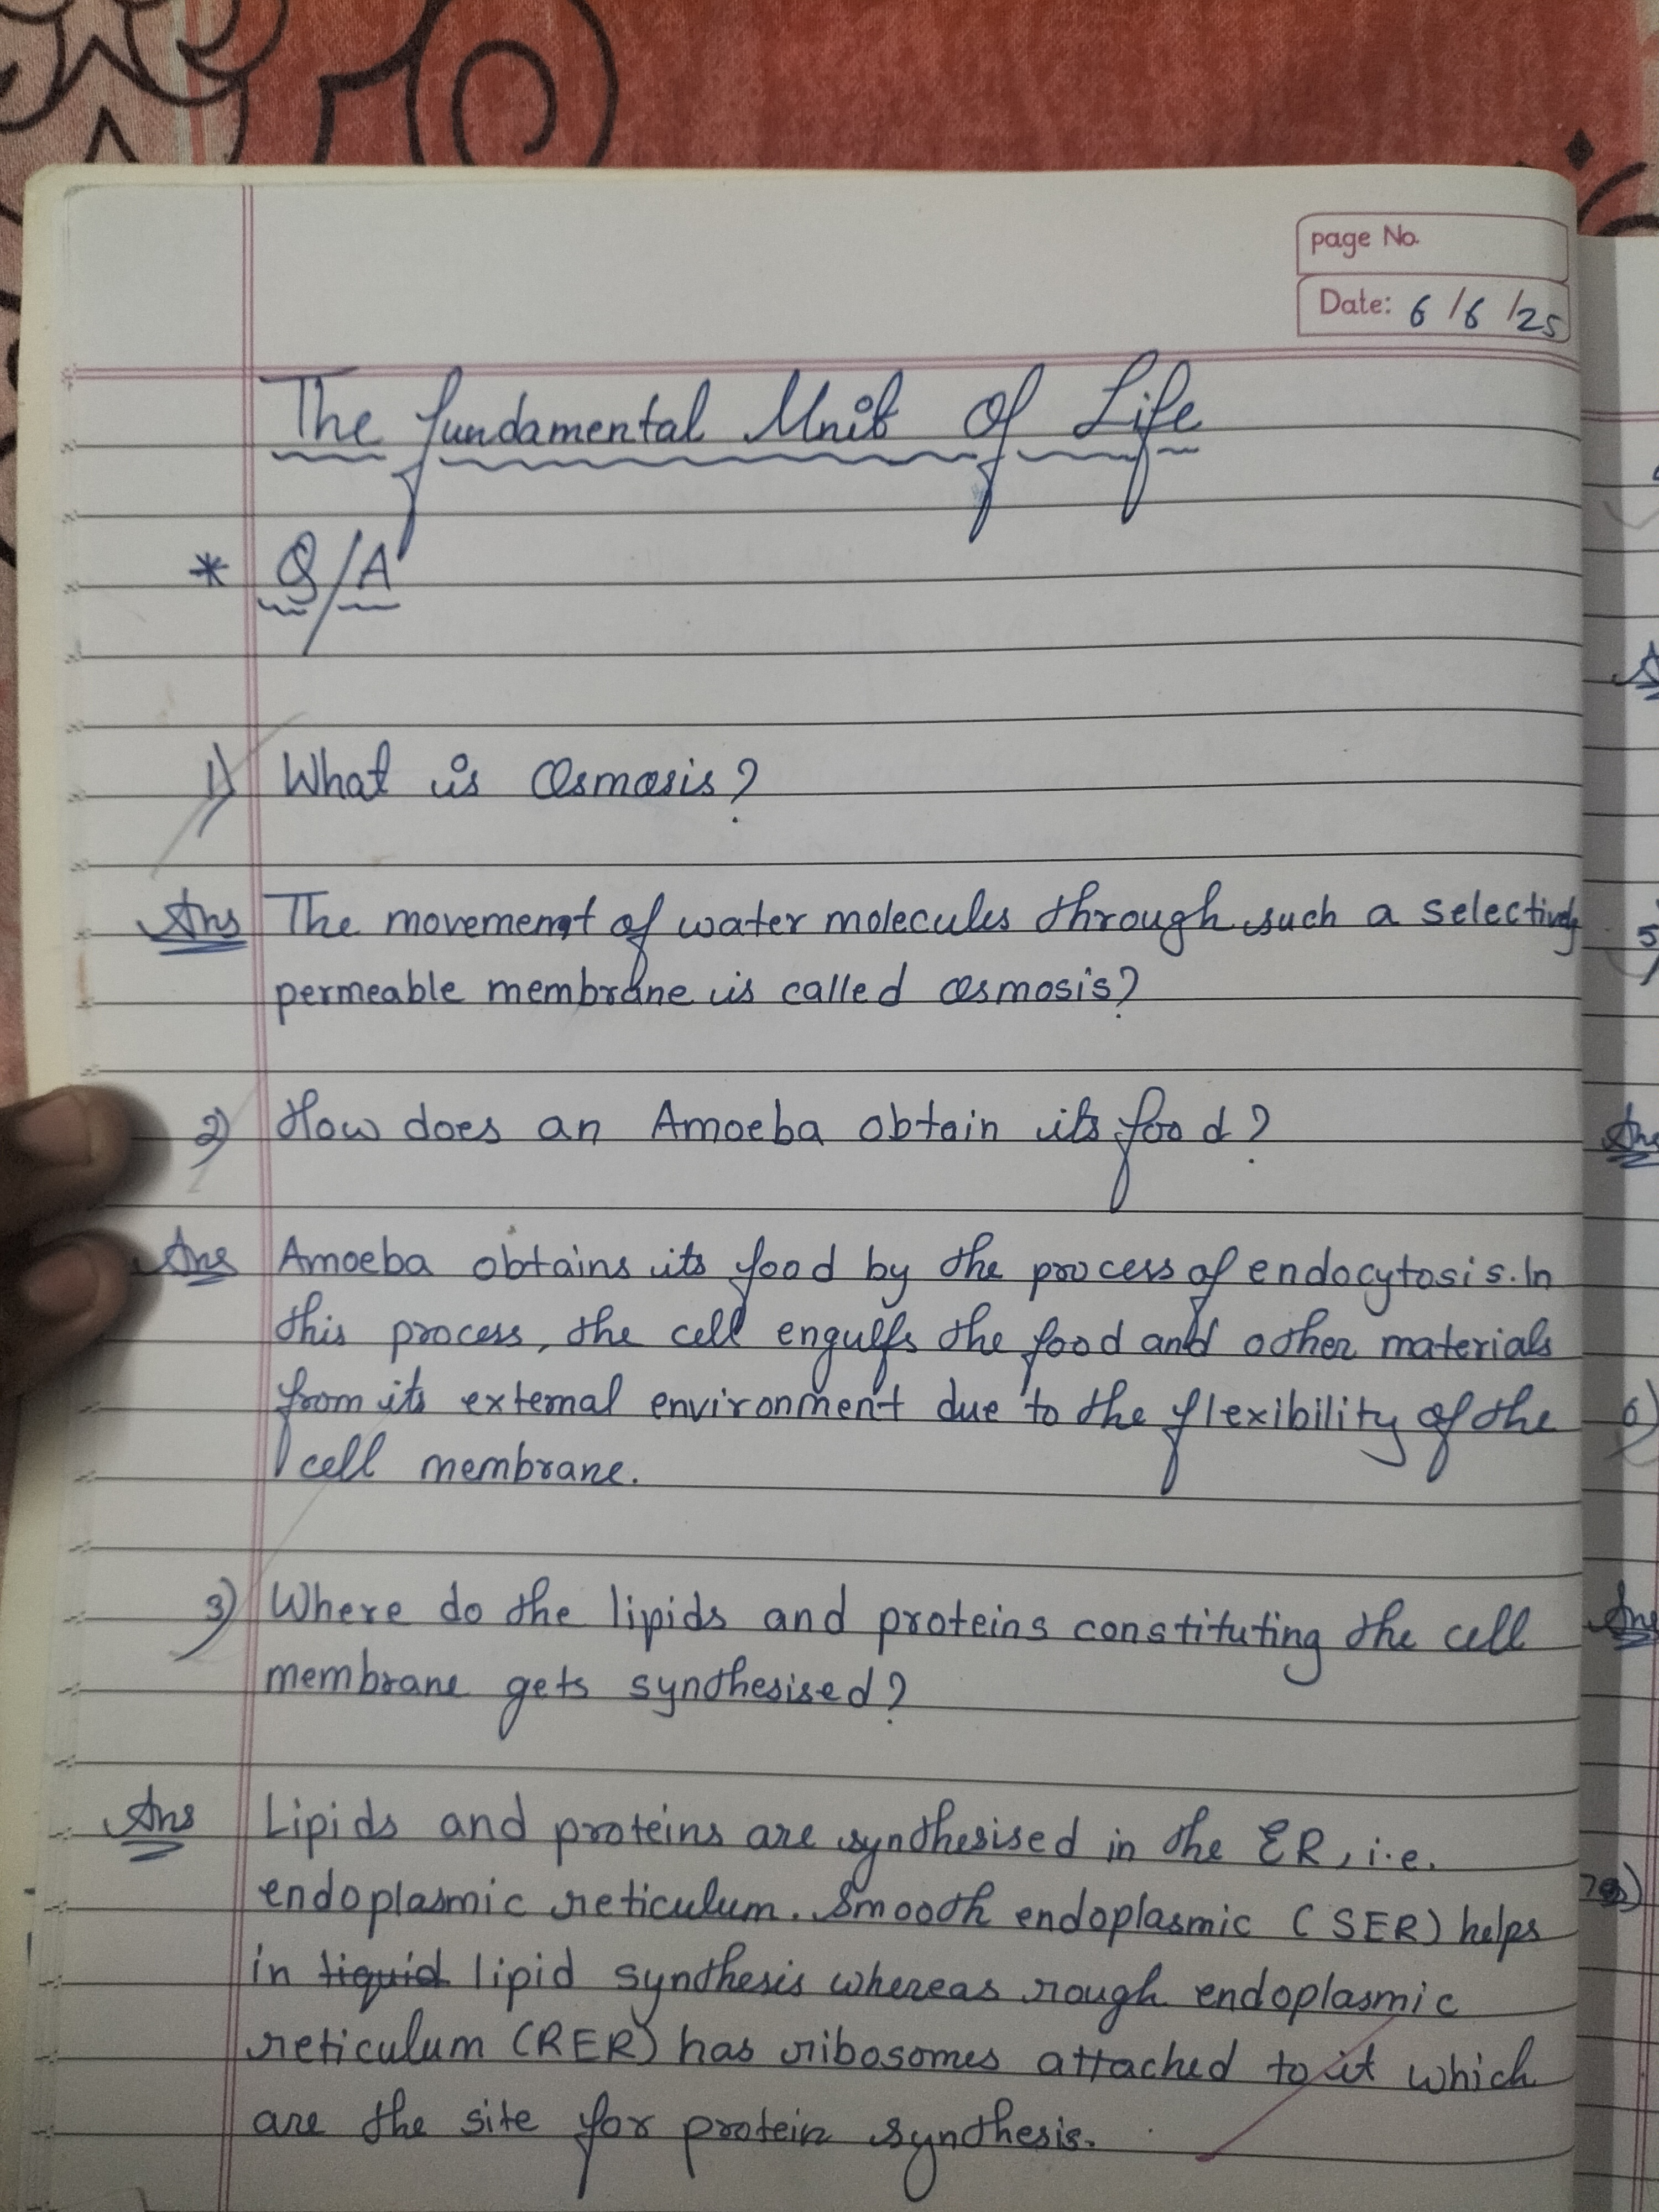 page No.
Date: 6/6/25
The fundamental Unit Of Life
* Q/A
1) What is Osmosis?
Ans The movement of water molecules through such a selectively
permeable membrane is called osmosis?
2) How does an Amoeba obtain its food?
Ans Amoeba obtains its food by the process of endocytosis. In
this process, the cell engulfs the food and other materials
from its external environment due to the flexibility of the
cell membrane.
3) Where do the lipids and proteins constituting the cell
membrane gets synthesised?
Ans Lipids and proteins are synthesised in the ER, i.e.
endoplasmic reticulum. Smooth endoplasmic (SER) helps
in liquid lipid synthesis whereas rough endoplasmic
reticulum (RER) has ribosomes attached to it which
are the site for protein synthesis.
5)
Ans
6)
Ans